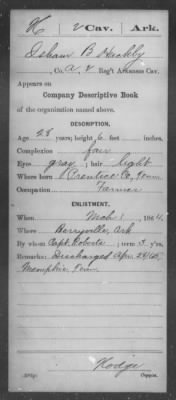 H 2 Cav. Ark.
Isham B Heckly
Co. A, 2 Reg't Arkansas Cav.
Appears on
Company Descriptive Book
of the organization named above.
DESCRIPTION.
Age 28 years; height 6 feet inches.
Complexion fair
Eyes gray; hair light
Where born Prentice Co, Tenn
Occupation Farmer
ENLISTMENT.
When Mch 1, 1864.
Where Berryville, Ark
By whom Capt. Roberts; term 3 y'rs.
Remarks: Discharged Apr. 29/65,
Memphis, Tenn.
Hodge
Copyist.